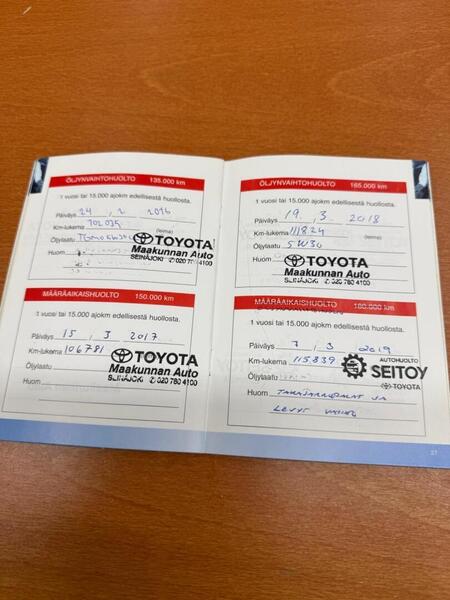 ÖLJYNVAIHTOHUOLTO 135.000 km
1 vuosi tai 15.000 ajokm edellisestä huollosta.
Päiväys 24 . 2 2016
Km-lukema 102035
(leima)
Öljylaatu
TOYOTA
Maakunnan Auto
SEINÄJOKI ✆ 020 780 4100
Huom
MÄÄRÄAIKAISHUOLTO 150.000 km
1 vuosi tai 15.000 ajokm edellisestä huollosta.
Päiväys 15 . 3 2017
Km-lukema 106781
TOYOTA
Maakunnan Auto
SEINÄJOKI ✆ 020 780 4100
Öljylaatu
Huom
ÖLJYNVAIHTOHUOLTO 165.000 km
1 vuosi tai 15.000 ajokm edellisestä huollosta.
Päiväys 19 . 3 2018
Km-lukema 111824
Öljylaatu 5W30
Huom
TOYOTA
Maakunnan Auto
SEINÄJOKI ✆ 020 780 4100
MÄÄRÄAIKAISHUOLTO 180.000 km
1 vuosi tai 15.000 ajokm edellisestä huollosta.
Päiväys 7 . 3 2019
Km-lukema 115839
AUTOHUOLTO
SEITOY
TOYOTA
Öljylaatu
Huom TAKAJARRUPALAT JA
LEVYT
37